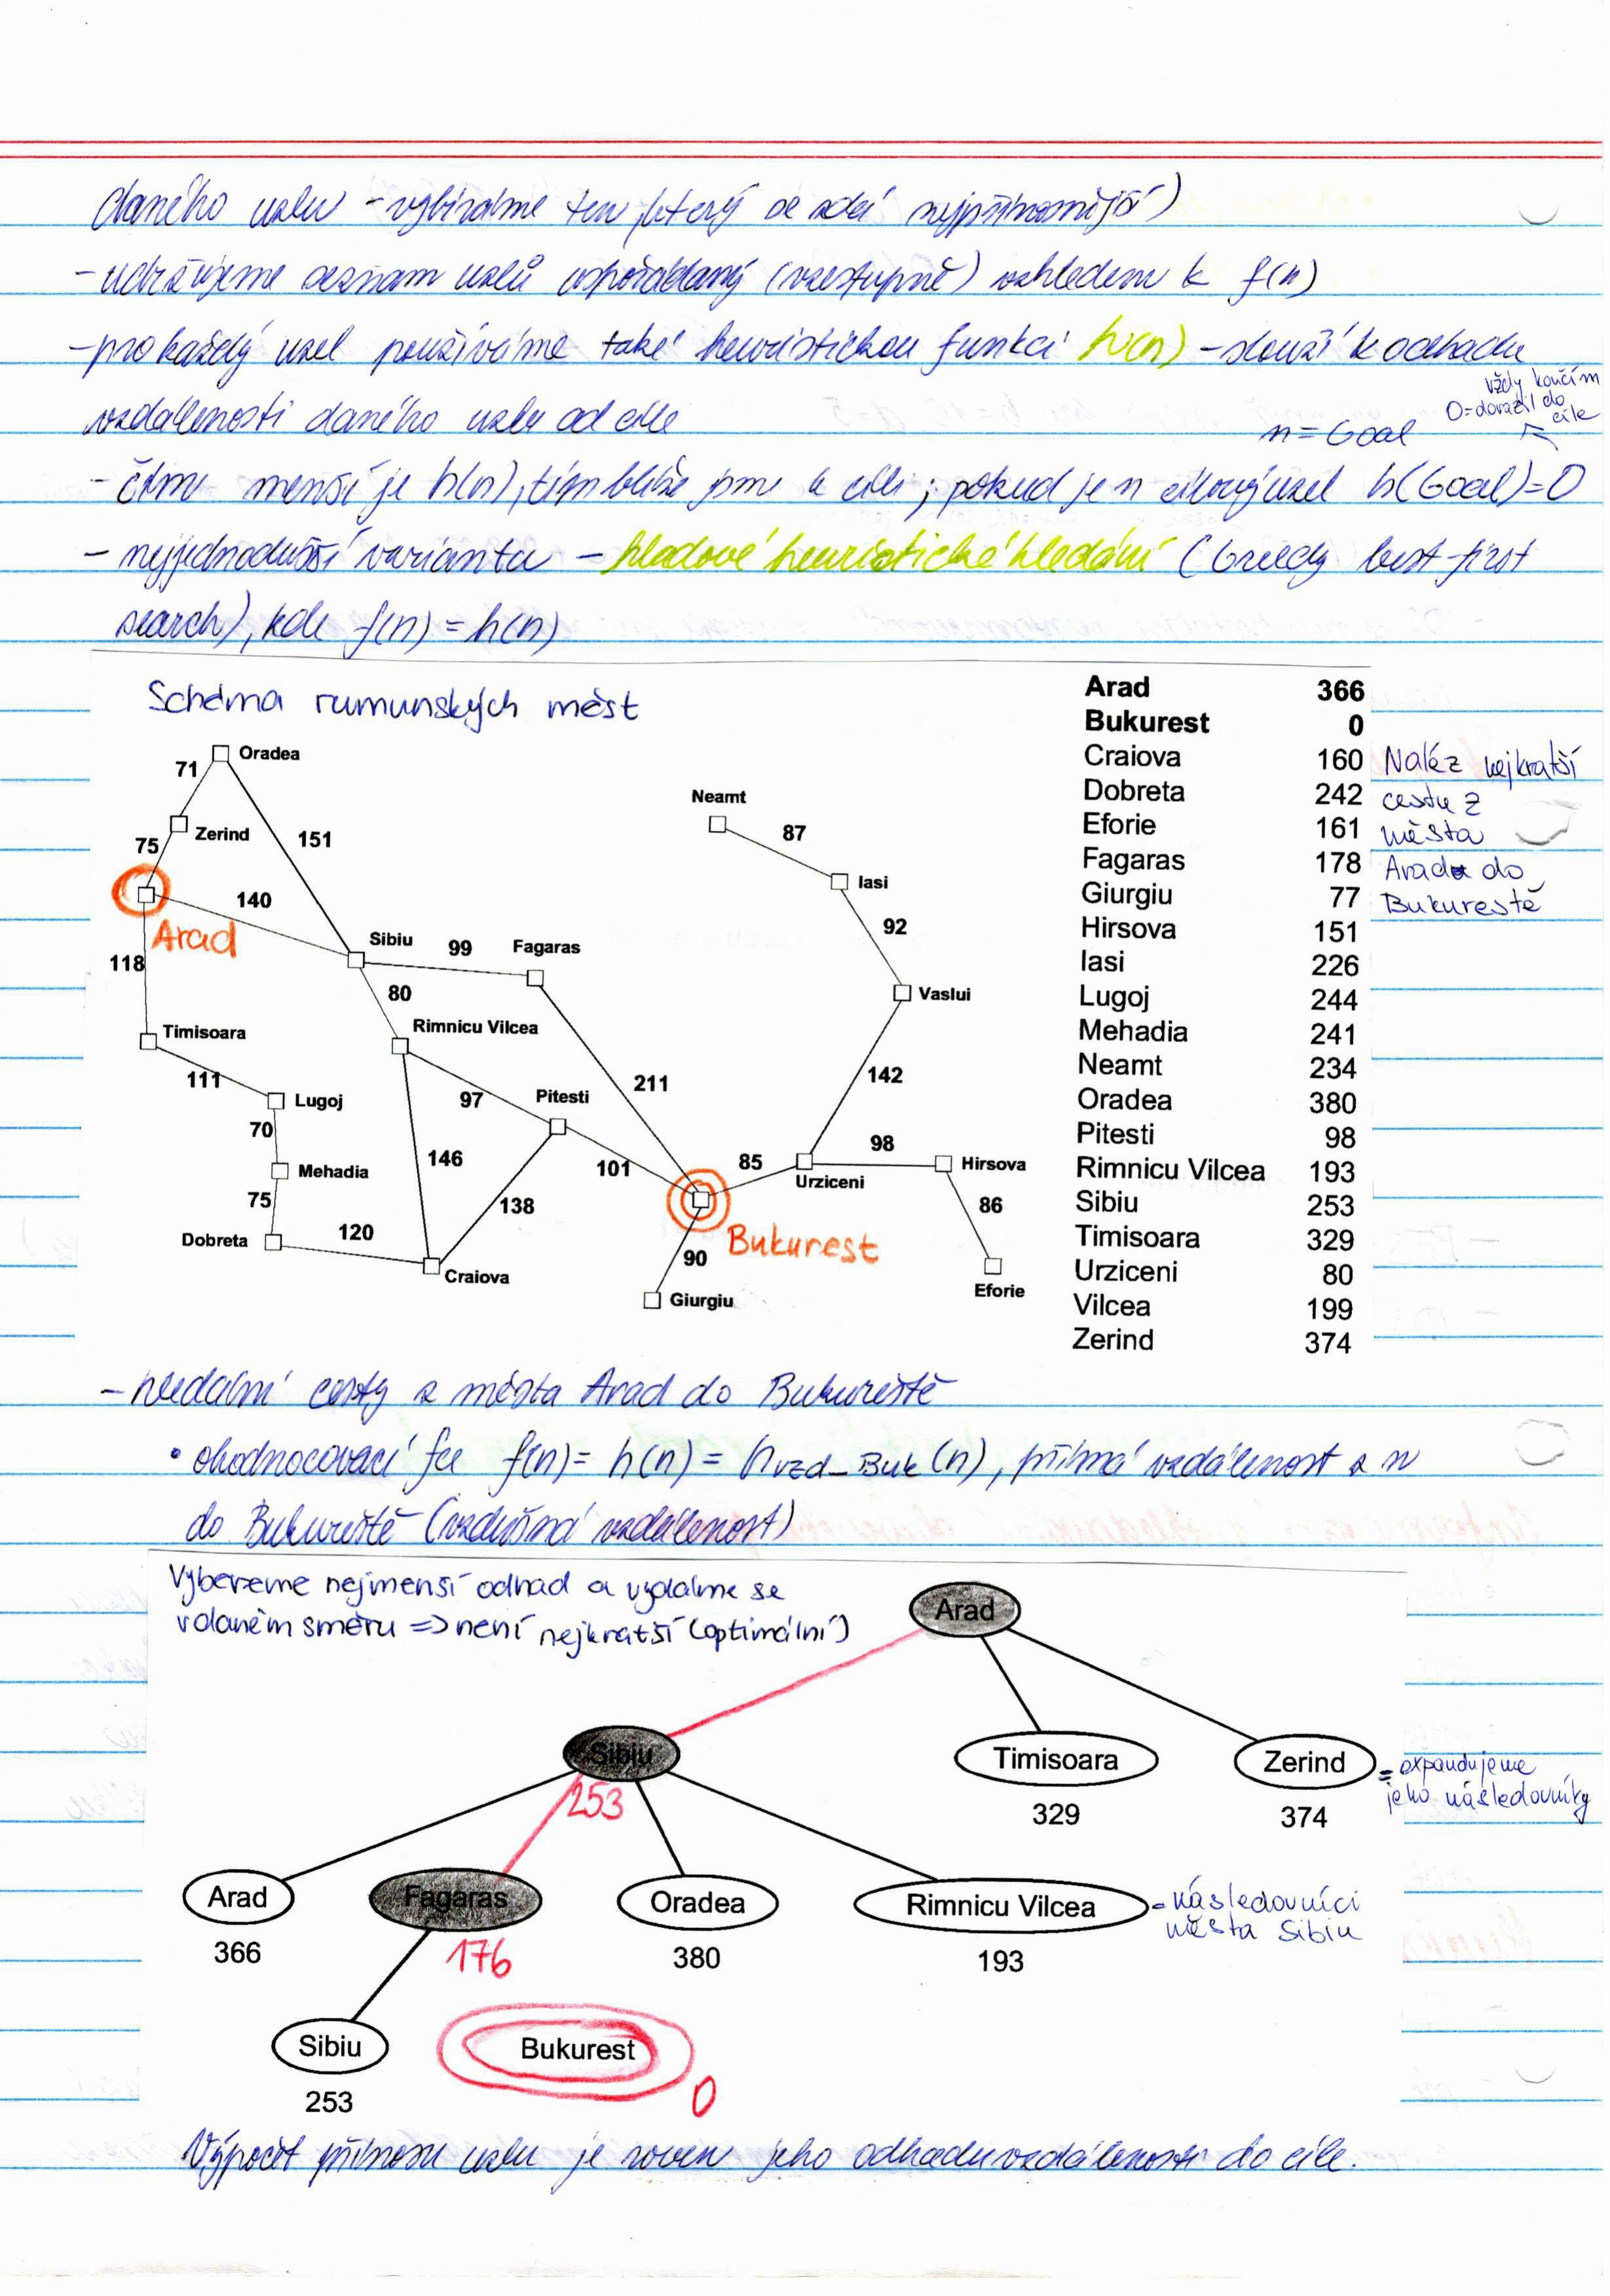 daného uzlu - vybíráme ten, který se zdá nejpřínosnější)
- udržujeme seznam uzlů uspořádaný (vzestupně) vzhledem k f(n)
- pro každý uzel používáme také heuristickou funkci h(n) - slouží k odhadu
vzdálenosti daného uzlu od cíle
vždy končím
0=dorazil do
cíle
n = Goal
- čím menší je h(n), tím blíže jsme k cíli; pokud je n cílový uzel h(Goal)=0
- nejjednodušší varianta - hladové heuristické hledání (Greedy best-first
search), kde f(n) = h(n)
Schéma rumunských měst
Oradea
71
Zerind
151
75
140
Arad
118
Sibiu
99
Fagaras
80
Rimnicu Vilcea
Timisoara
111
Lugoj
70
Mehadia
75
Dobreta
120
Craiova
146
97
Pitesti
138
101
211
Neamt
87
Iasi
92
Vaslui
142
85
98
Urziceni
Hirsova
86
Eforie
Bukurest
90
Giurgiu
Arad 366
Bukurest 0
Craiova 160
Dobreta 242
Eforie 161
Fagaras 178
Giurgiu 77
Hirsova 151
Iasi 226
Lugoj 244
Mehadia 241
Neamt 234
Oradea 380
Pitesti 98
Rimnicu Vilcea 193
Sibiu 253
Timisoara 329
Urziceni 80
Vilcea 199
Zerind 374
Naléz nejkratší
cestu z
města
Aradu do
Bukurestě
- hledání cesty z města Arad do Bukureště
• ohodnocovací fce f(n) = h(n) = hvzd_Buk(n), přímá vzdálenost z n
do Bukureště (vzdušná vzdálenost)
Vybereme nejmenší odhad a vydáme se
v daném směru => není nejkratší (optimální)
Arad
Sibiu
253
Timisoara
329
Zerind
374
= expandujeme
jeho následovníky
Arad
366
Fagaras
176
Oradea
380
Rimnicu Vilcea
193
= následovníci
města Sibiu
Sibiu
253
Bukurest
0
Výpočet přínosu uzlu je roven jeho odhadu vzdálenosti do cíle.